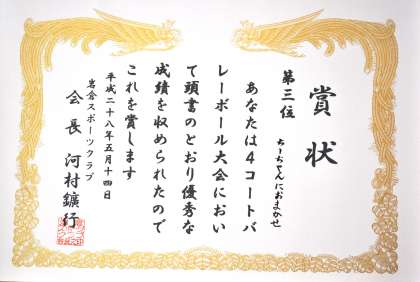 賞状
第三位
ちーちゃんにおまかせ
あなたは4コートバ
レーボール大会におい
て頭書のとおり優秀な
成績を収められたので
これを賞します
平成二十八年五月十四日
岩倉スポーツクラブ
会長 河村鑛行